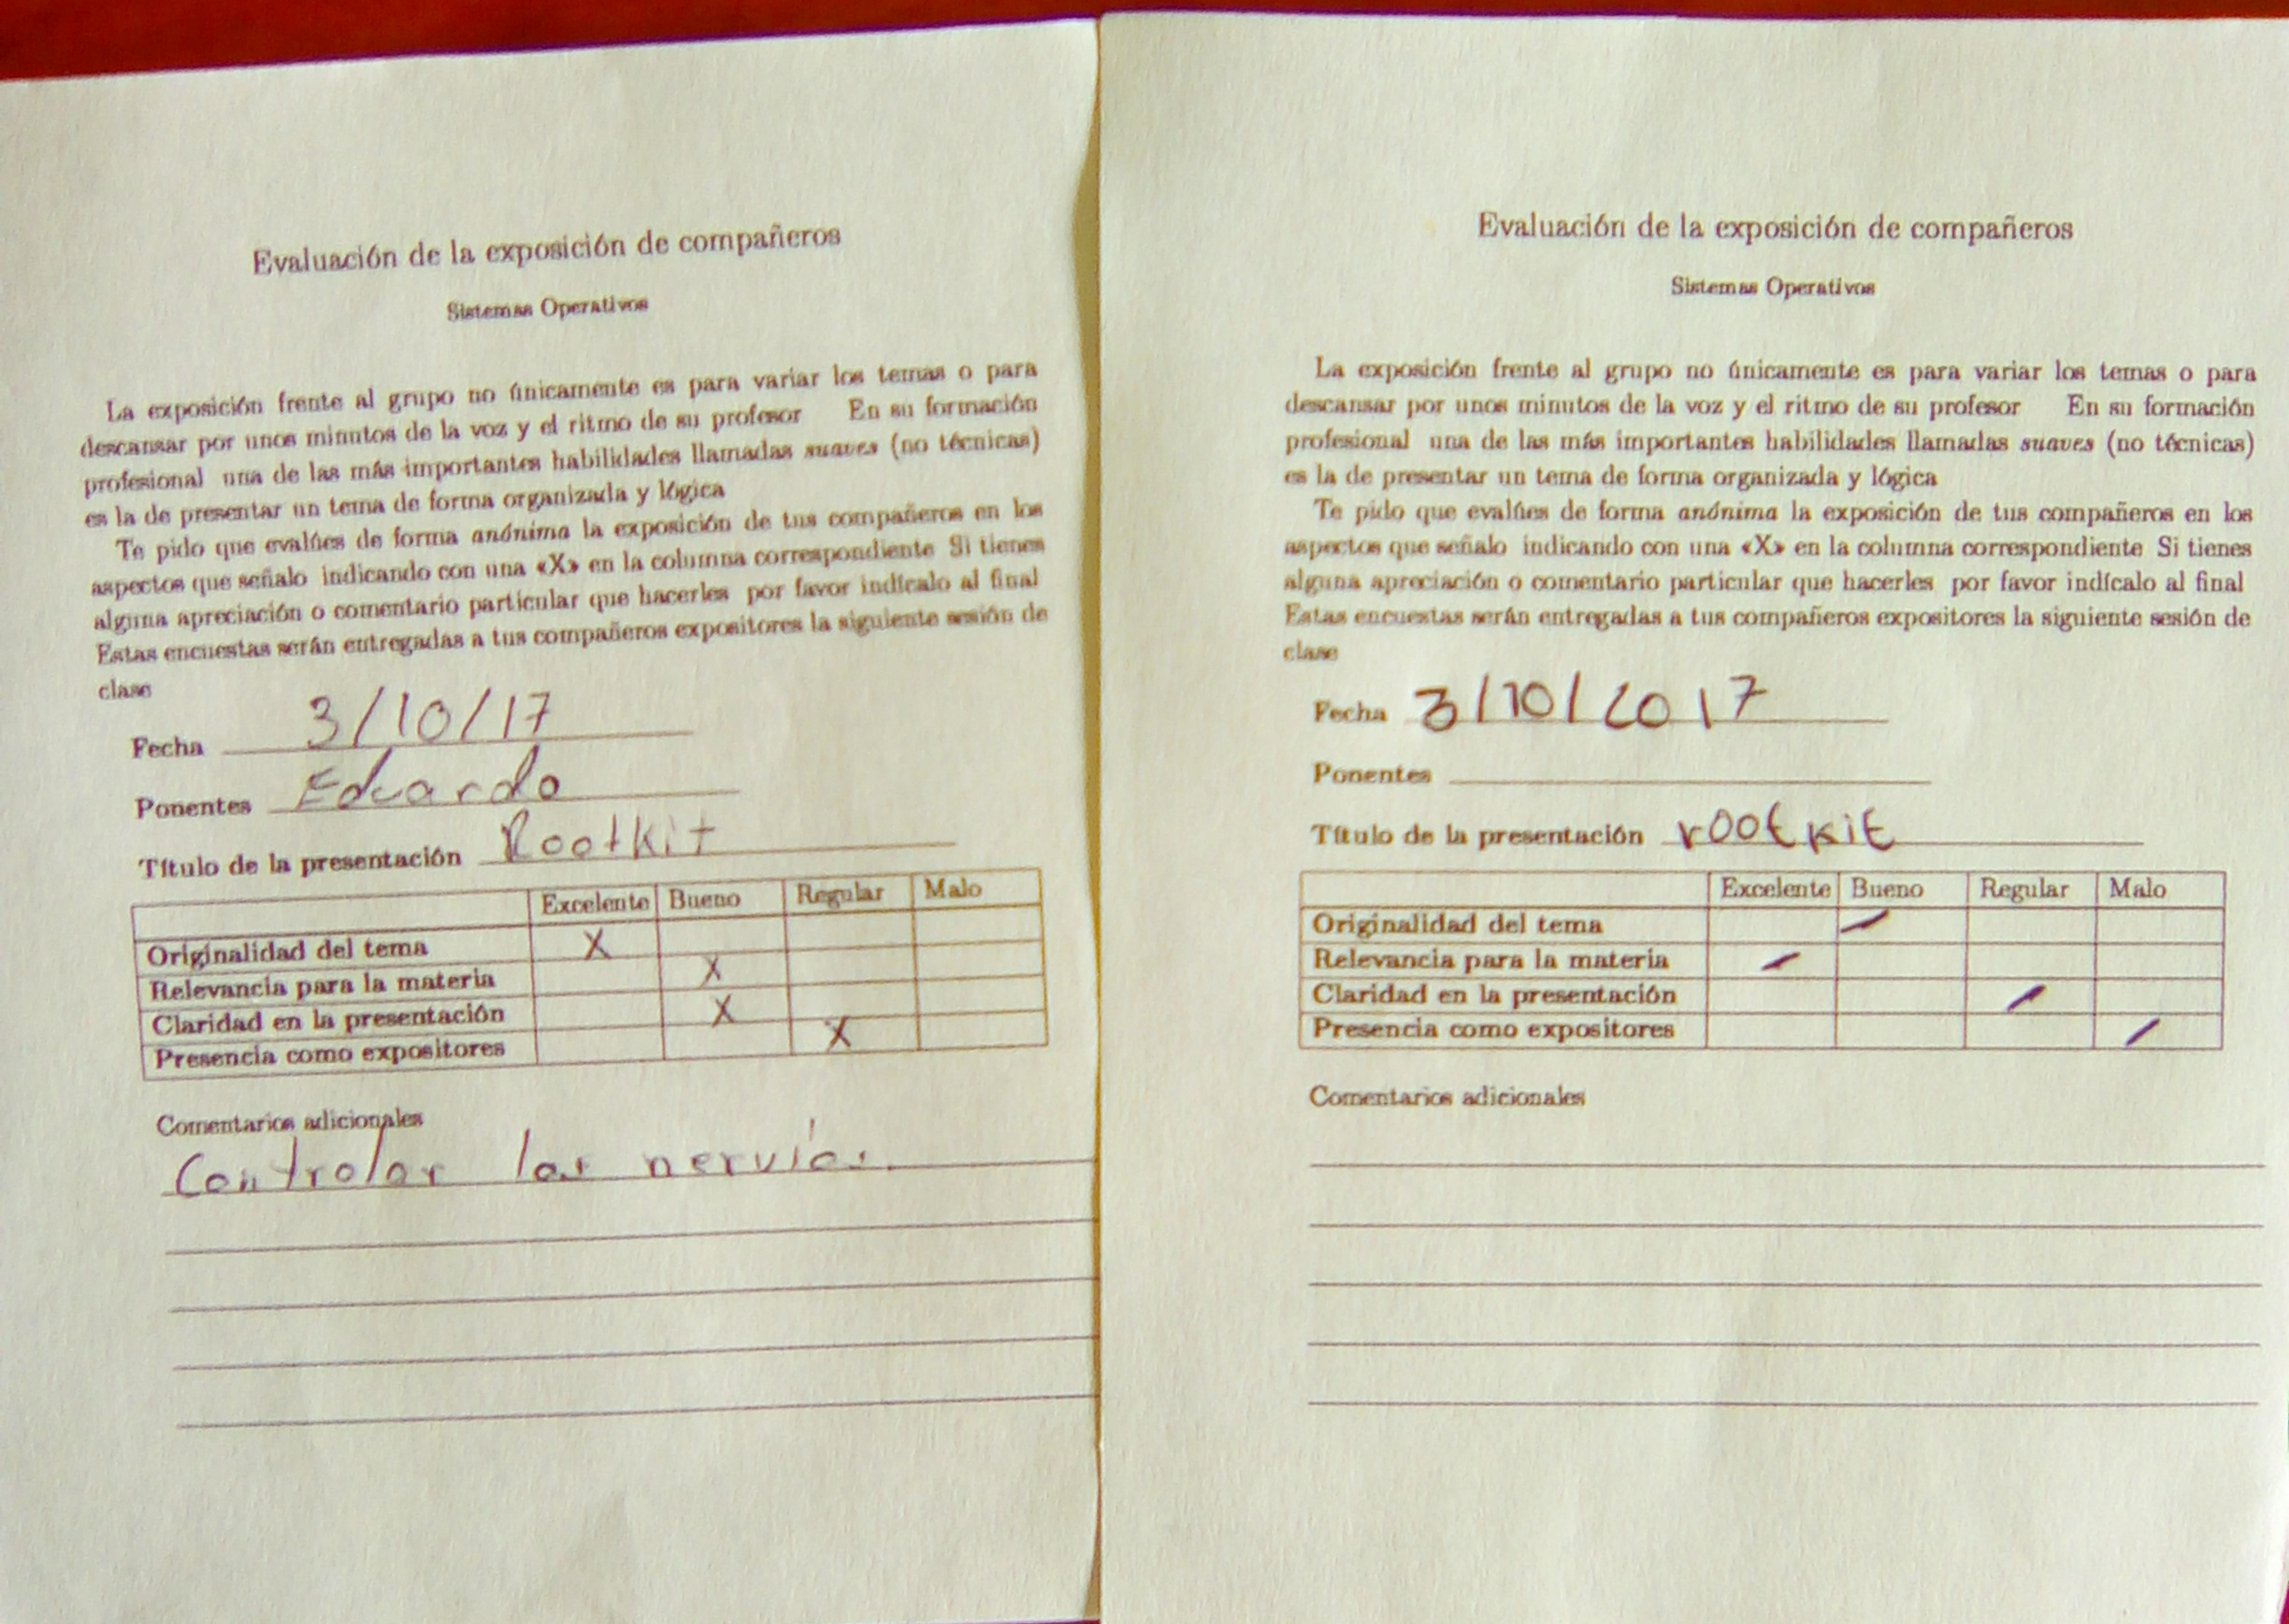 Evaluación de la exposición de compañeros
Sistemas Operativos
La exposición frente al grupo no únicamente es para variar los temas o para
descansar por unos minutos de la voz y el ritmo de su profesor En su formación
profesional una de las más importantes habilidades llamadas suaves (no técnicas)
es la de presentar un tema de forma organizada y lógica
Te pido que evalúes de forma anónima la exposición de tus compañeros en los
aspectos que señalo indicando con una «X» en la columna correspondiente Si tienes
alguna apreciación o comentario particular que hacerles por favor indícalo al final
Estas encuestas serán entregadas a tus compañeros expositores la siguiente sesión de
clase
Fecha 3/10/17
Ponentes Eduardo
Título de la presentación Rootkit
Excelente Bueno Regular Malo
Originalidad del tema X
Relevancia para la materia X
Claridad en la presentación X
Presencia como expositores X
Comentarios adicionales
Controlar los nervios.
Evaluación de la exposición de compañeros
Sistemas Operativos
La exposición frente al grupo no únicamente es para variar los temas o para
descansar por unos minutos de la voz y el ritmo de su profesor En su formación
profesional una de las más importantes habilidades llamadas suaves (no técnicas)
es la de presentar un tema de forma organizada y lógica
Te pido que evalúes de forma anónima la exposición de tus compañeros en los
aspectos que señalo indicando con una «X» en la columna correspondiente Si tienes
alguna apreciación o comentario particular que hacerles por favor indícalo al final
Estas encuestas serán entregadas a tus compañeros expositores la siguiente sesión de
clase
Fecha 3/10/2017
Ponentes
Título de la presentación rootkit
Excelente Bueno Regular Malo
Originalidad del tema
Relevancia para la materia
Claridad en la presentación
Presencia como expositores
Comentarios adicionales